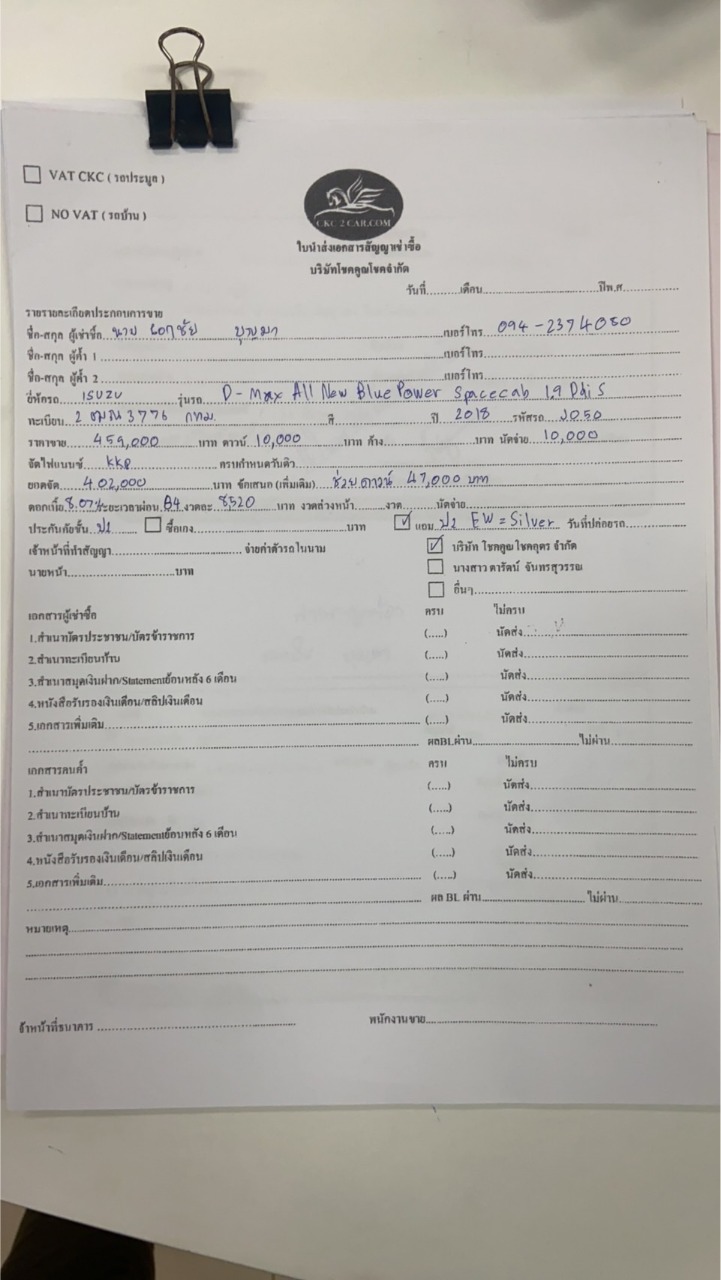 VAT CKC ( รถประมูล )
NO VAT ( รถบ้าน )
CKC 2 CAR.COM
ใบนำส่งเอกสารสัญญาเช่าซื้อ
บริษัทโชคคูณโชคจำกัด
วันที่.........เดือน..............................ปีพ.ศ...............
รายรายละเอียดประกอบการขาย
ชื่อ-สกุล ผู้เช่าซื้อ นาย เอกชัย บุญมา เบอร์โทร 094-2374050
ชื่อ-สกุล ผู้ค้ำ 1 เบอร์โทร
ชื่อ-สกุล ผู้ค้ำ 2 เบอร์โทร
ยี่ห้อรถ ISUZU รุ่นรถ D-Max All New Blue Power Spacecab 1.9 Ddi S
ทะเบียน 2 ฒฌ 3776 กทม. สี ปี 2018 รหัสรถ 2050
ราคาขาย 459,000 บาท ดาวน์ 10,000 บาท ค้าง บาท นัดจ่าย 10,000
จัดไฟแนนซ์ kkp ครบกำหนดวันคิว
ยอดจัด 402,000 บาท ข้อเสนอ (เพิ่มเติม) ช่วยดาวน์ 47,000 บาท
ดอกเบี้ย 8.07% ระยะเวลาผ่อน 84 งวดละ 8520 บาท งวดล่วงหน้า งวด นัดจ่าย
ประกันภัยชั้น ป2 ซื้อเอง บาท แถม ป2 EW = Silver วันที่ปล่อยรถ
เจ้าหน้าที่ทำสัญญา จ่ายค่าตัวรถในนาม บริษัท โชคคูณ โชคอุดร จำกัด
นายหน้า บาท นางสาว ดารัตน์ จันทรสุวรรณ
อื่นๆ
เอกสารผู้เช่าซื้อ ครบ ไม่ครบ
1.สำเนาบัตรประชาชน/บัตรข้าราชการ (.....) นัดส่ง
2.สำเนาทะเบียนบ้าน (.....) นัดส่ง
3.สำเนาสมุดเงินฝาก/Statementย้อนหลัง 6 เดือน (.....) นัดส่ง
4.หนังสือรับรองเงินเดือน/สลิปเงินเดือน (.....) นัดส่ง
5.เอกสารเพิ่มเติม (.....) นัดส่ง
ผลBLผ่าน ไม่ผ่าน
เอกสารคนค้ำ ครบ ไม่ครบ
1.สำเนาบัตรประชาชน/บัตรข้าราชการ (.....) นัดส่ง
2.สำเนาทะเบียนบ้าน (.....) นัดส่ง
3.สำเนาสมุดเงินฝาก/Statementย้อนหลัง 6 เดือน (.....) นัดส่ง
4.หนังสือรับรองเงินเดือน/สลิปเงินเดือน (.....) นัดส่ง
5.เอกสารเพิ่มเติม (.....) นัดส่ง
ผล BL ผ่าน ไม่ผ่าน
หมายเหตุ
จ้าหน้าที่ธนาคาร พนักงานขาย